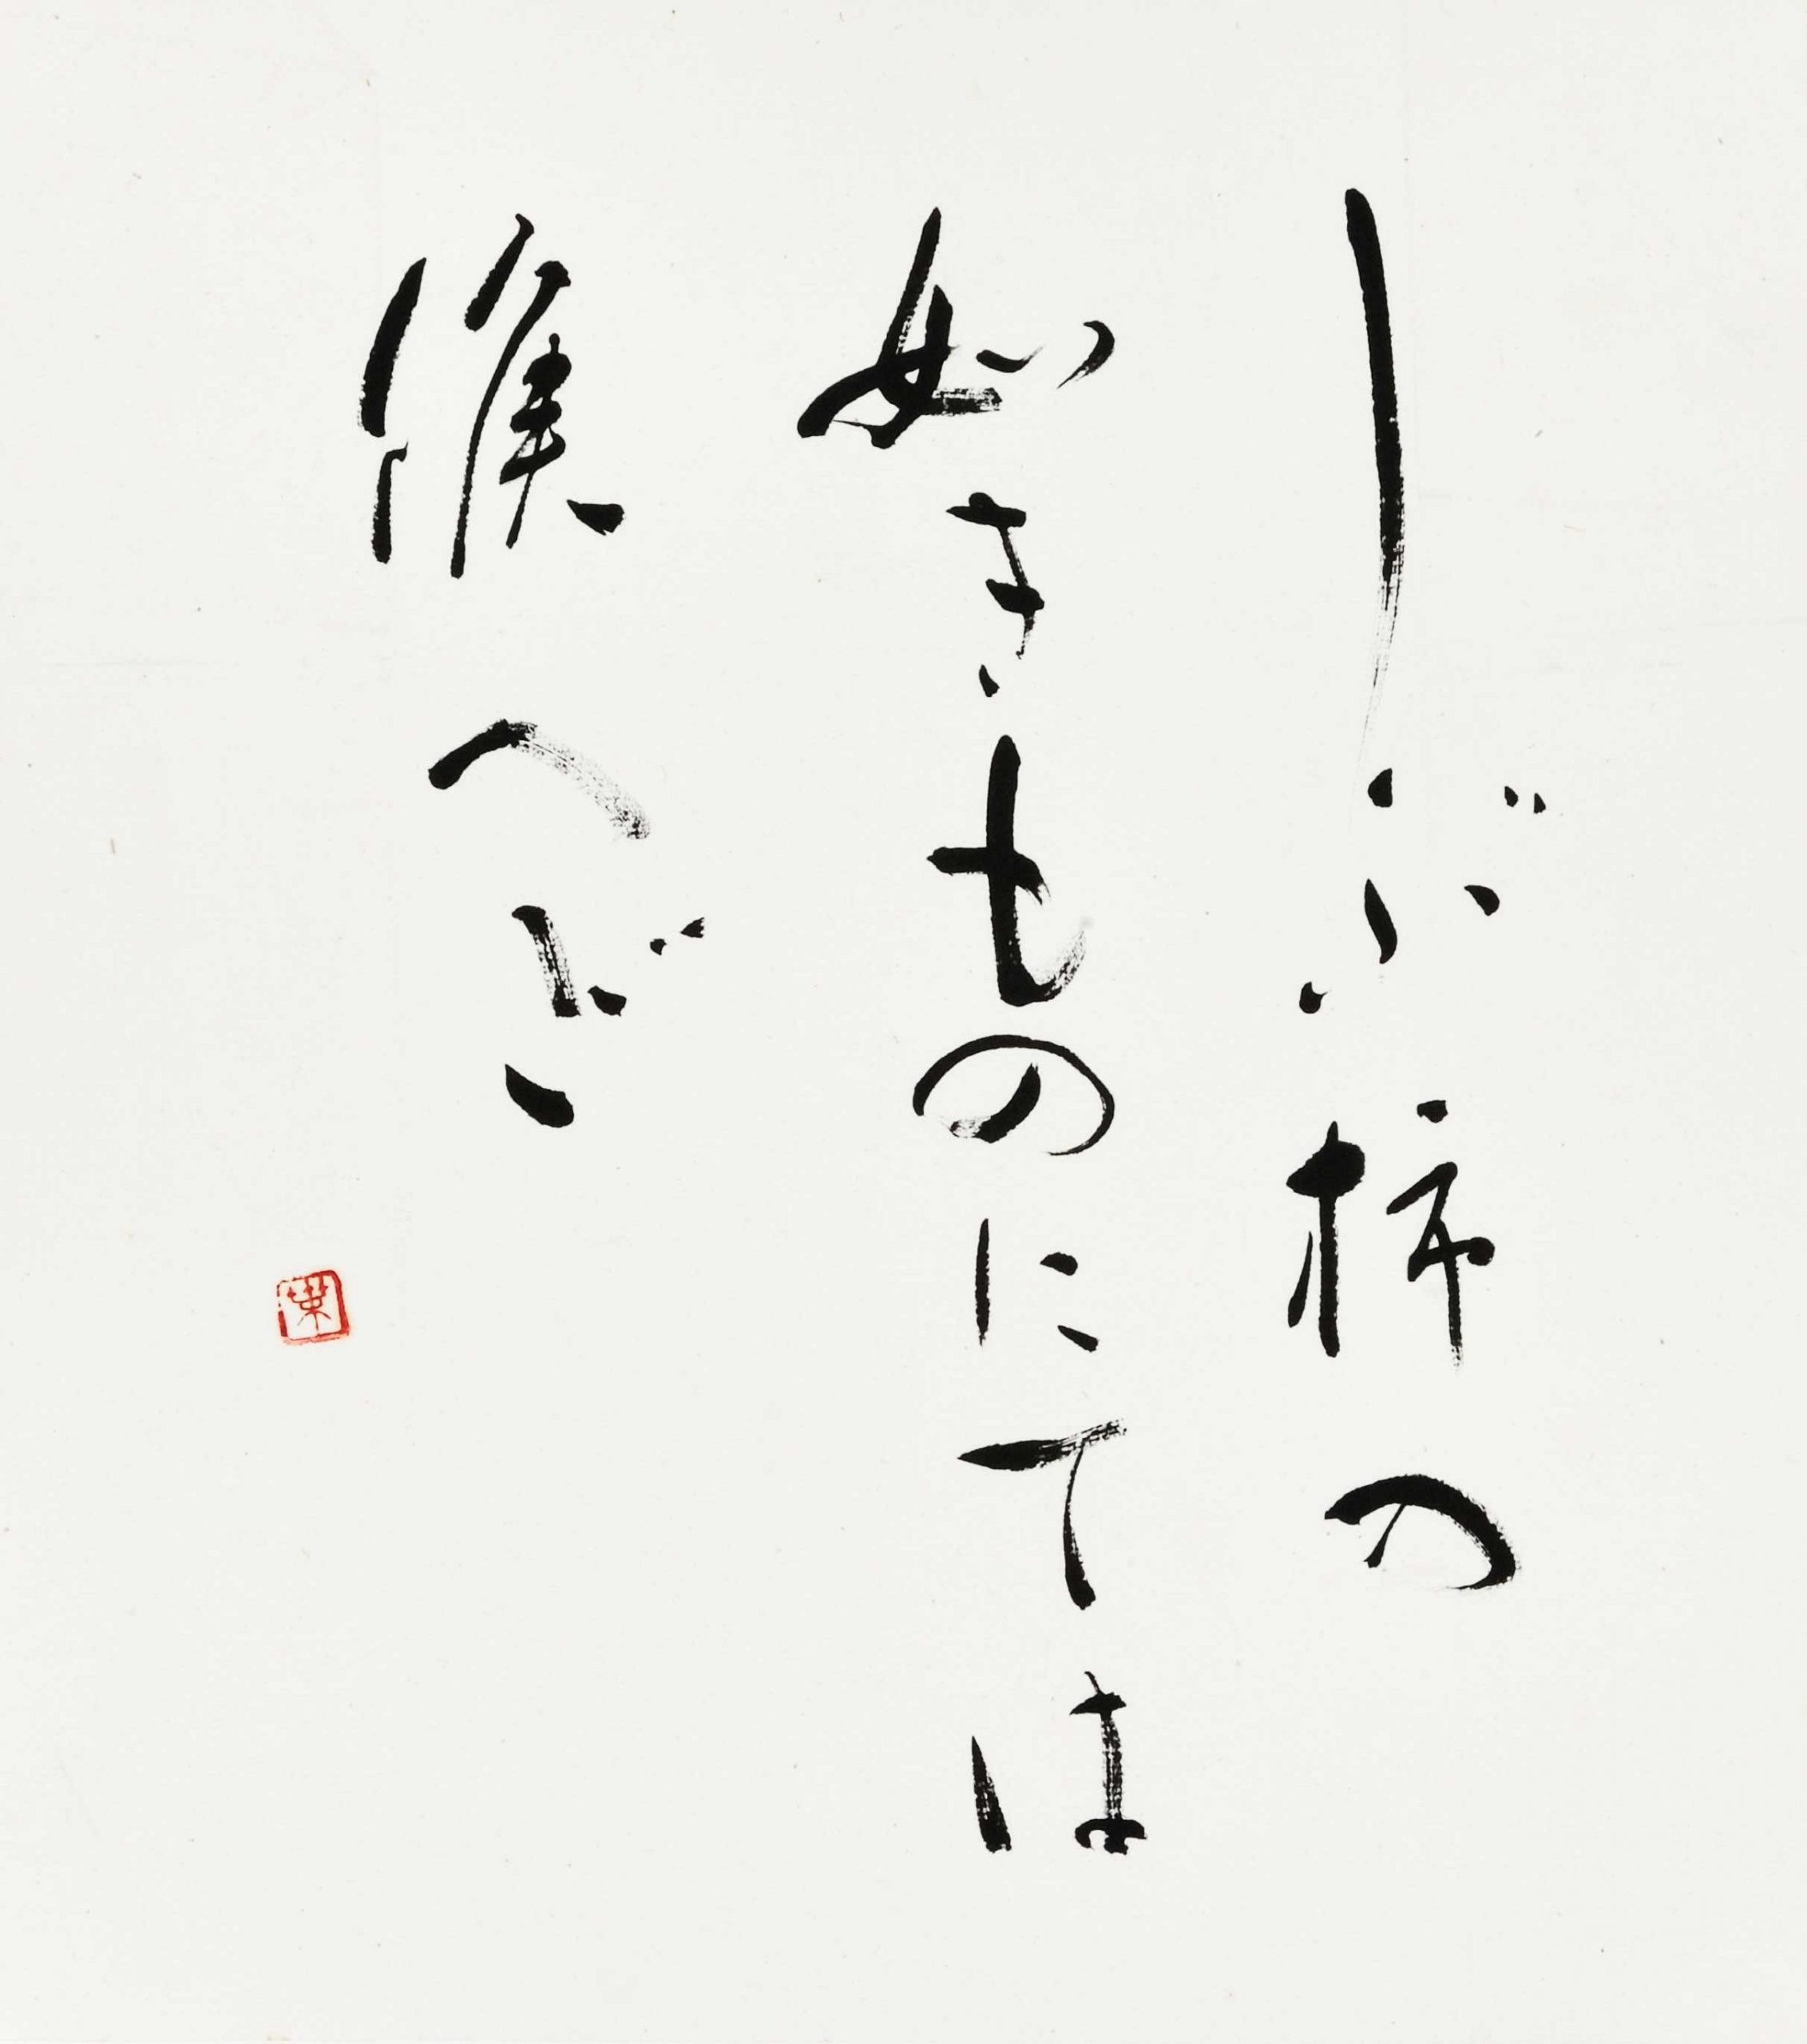 しぶ柿の
如きものにては
候へど
葉